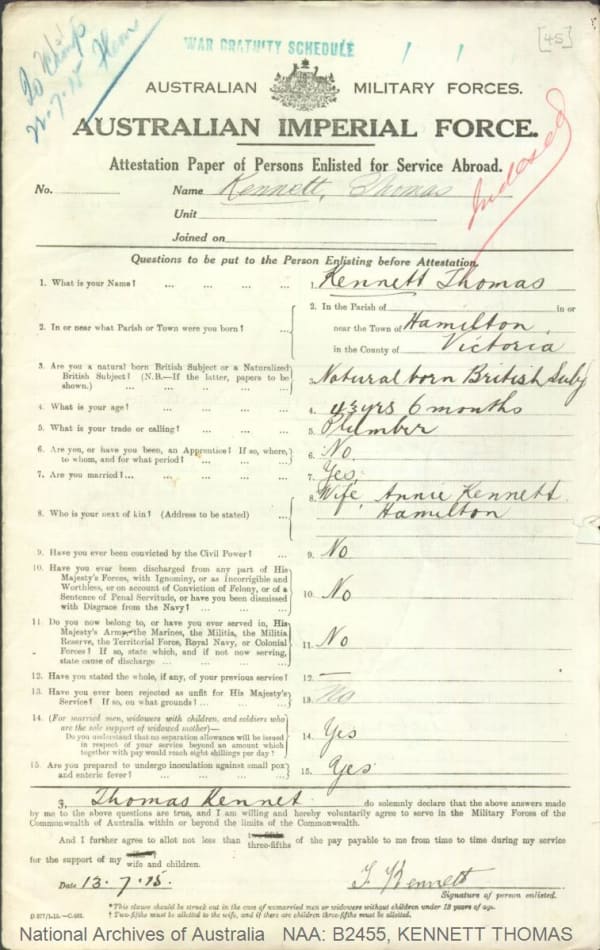 To Chief
22-7-15
WAR GRATUITY SCHEDULE
[45]
AUSTRALIAN MILITARY FORCES.
AUSTRALIAN IMPERIAL FORCE.
Attestation Paper of Persons Enlisted for Service Abroad.
Indexed
No. Name Kennett, Thomas
Unit
Joined on
Questions to be put to the Person Enlisting before Attestation.
1. What is your Name? ... ... ... ... 1. Kennett Thomas
2. In or near what Parish or Town were you born? ... 2. In the Parish of in or
near the Town of Hamilton
in the County of Victoria
3. Are you a natural born British Subject or a Naturalized
British Subject? (N.B.—If the latter, papers to be
shown.) ... ... ... ... 3. Natural born British Subj
4. What is your age? ... ... ... ... 4. 43 yrs 6 months
5. What is your trade or calling? ... ... ... 5. Plumber
6. Are you, or have you been, an Apprentice? If so, where,
to whom, and for what period? ... ... ... 6. No.
7. Are you married?... ... ... ... 7. Yes.
8. Who is your next of kin? (Address to be stated) ... 8. Wife, Annie Kennett
Hamilton
9. Have you ever been convicted by the Civil Power? ... 9. No
10. Have you ever been discharged from any part of His
Majesty's Forces, with Ignominy, or as Incorrigible and
Worthless, or on account of Conviction of Felony, or of a
Sentence of Penal Servitude, or have you been dismissed
with Disgrace from the Navy? ... ... ... 10. No
11. Do you now belong to, or have you ever served in, His
Majesty's Army, the Marines, the Militia, the Militia
Reserve, the Territorial Force, Royal Navy, or Colonial
Forces? If so, state which, and if not now serving,
state cause of discharge ... ... ... 11. No
12. Have you stated the whole, if any, of your previous service? 12. —
13. Have you ever been rejected as unfit for His Majesty's
Service? If so, on what grounds? ... ... 13. No
14. (For married men, widowers with children, and soldiers who
are the sole support of widowed mother)—
Do you understand that no separation allowance will be issued
in respect of your service beyond an amount which
together with pay would reach eight shillings per day? 14. Yes
15. Are you prepared to undergo inoculation against small pox
and enteric fever? ... ... ... ... 15. Yes
I, Thomas Kennet. do solemnly declare that the above answers made
by me to the above questions are true, and I am willing and hereby voluntarily agree to serve in the Military Forces of the
Commonwealth of Australia within or beyond the limits of the Commonwealth.
And I further agree to allot not less than two-fifths three-fifths of the pay payable to me from time to time during my service
for the support of my wife wife and children.
Date 13.7.15. T. Kennett
Signature of person enlisted.
*This clause should be struck out in the case of unmarried men or widowers without children under 18 years of age.
†Two-fifths must be allotted to the wife, and if there are children three-fifths must be allotted.
National Archives of Australia NAA: B2455, KENNETT THOMAS